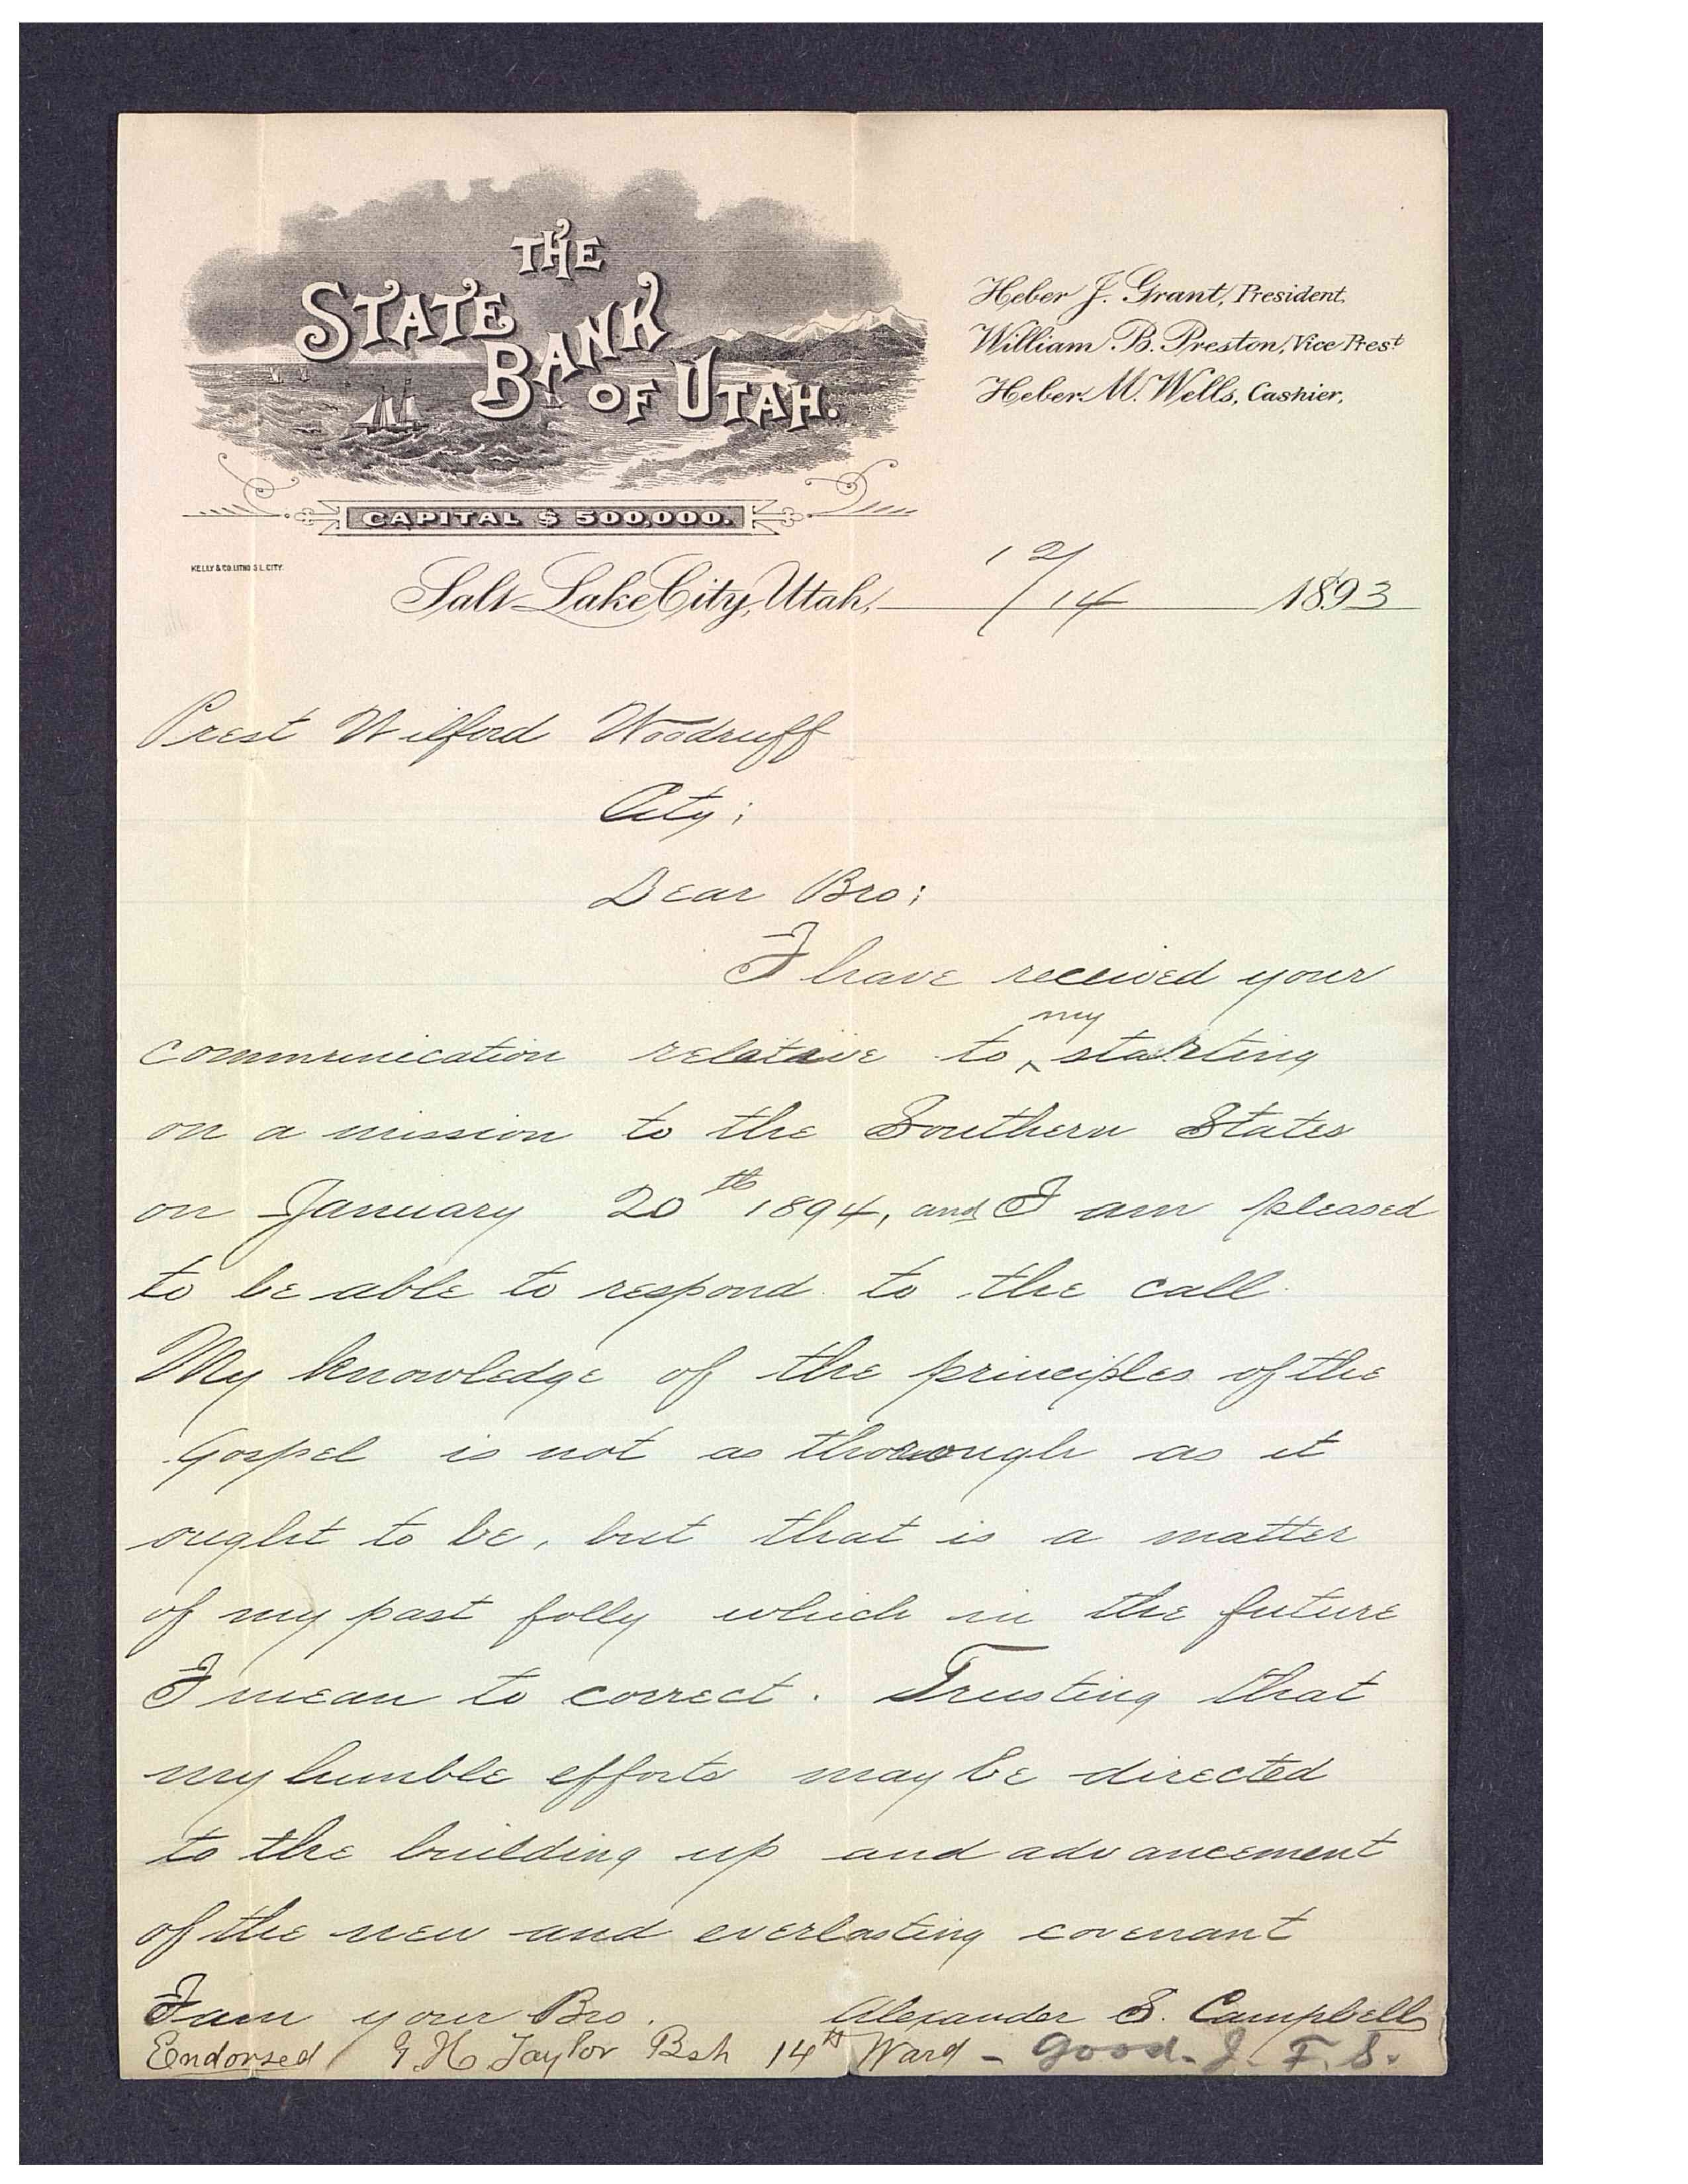 THE
STATE
BANK
OF UTAH.
CAPITAL $ 500,000.
KELLY & CO. LITHO S L. CITY.
Heber J. Grant, President.
William B. Preston, Vice Prest
Heber M. Wells, Cashier.
Salt Lake City, Utah, 12/14 1893
Prest Wilford Woodruff
City;
Dear Bro;
I have received your
communication relative to my starting
on a mission to the Southern States
on January 20th 1894, and I am pleased
to be able to respond to the call.
My knowledge of the principles of the
Gospel is not as thorough as it
ought to be, but that is a matter
of my past folly which in the future
I mean to correct. Trusting that
my humble efforts may be directed
to the building up and advancement
of the new and everlasting covenant
I am your Bro. Alexander S. Campbell
Endorsed G H Taylor Bsh 14th Ward - Good. J. F. S.